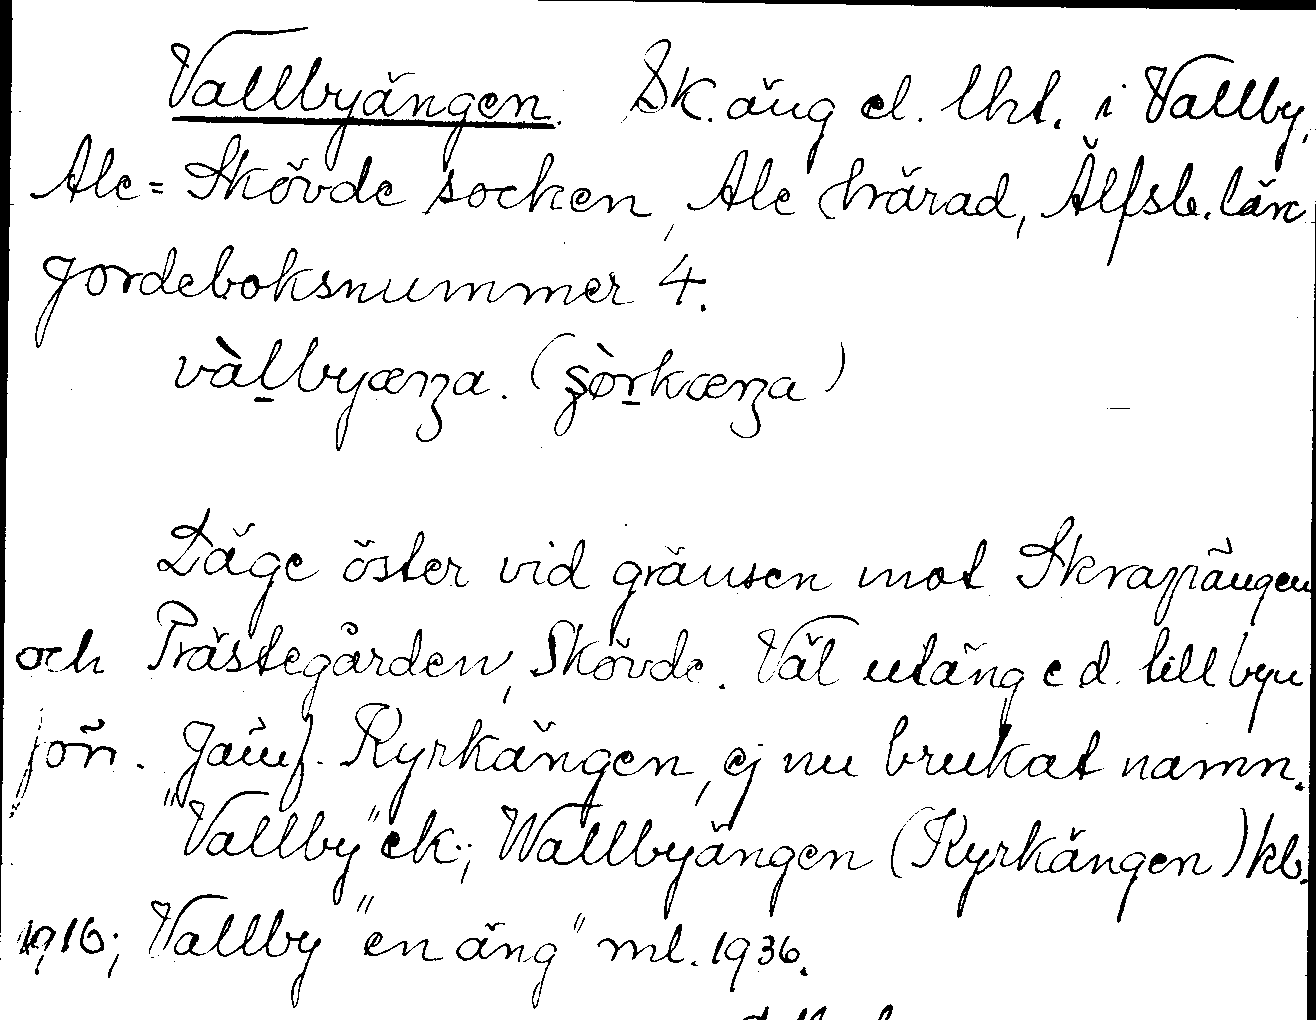 Vallbyängen. Sk. äng el. lht. i Vallby,
Ale=Skövde socken, Ale härad, Älfsb. län
jordeboksnummer 4.
vàl̠byæŋa. (
Läge öster vid gränsen mot Skrapängen
och Prästegården, Skövde. Väl utäng e d. till byn
jön. Jämf. Kyrkängen, ej nu brukat namn.
"Vallby" ek.; Wallbyängen (Kyrkängen) kb.
1916; Vallby "en äng" ml. 1936.